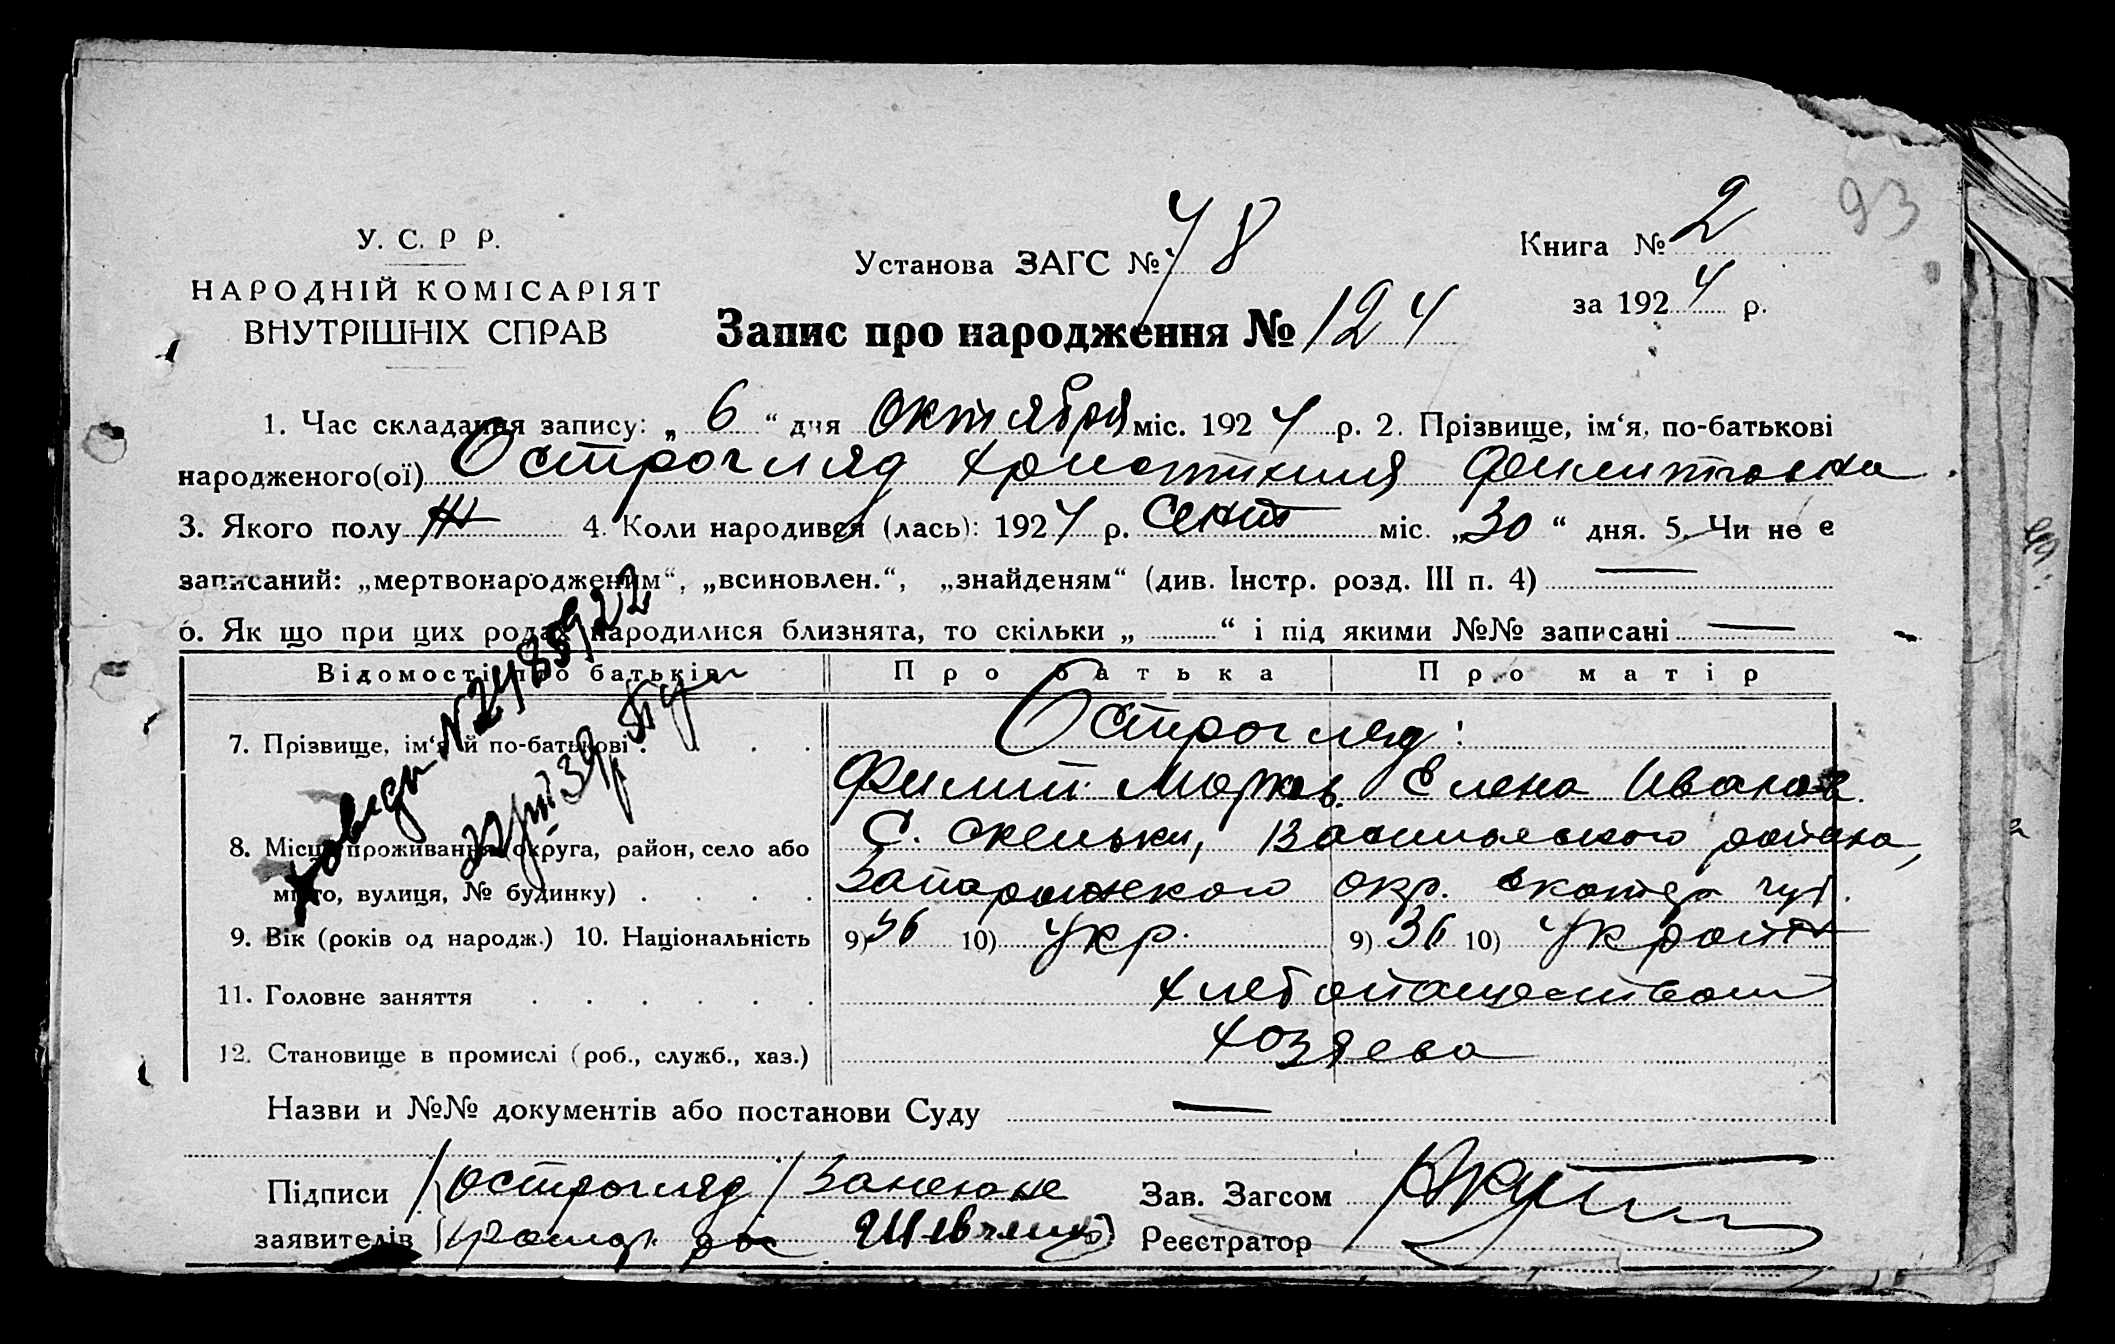 93
У. С. Р Р.
НАРОДНІЙ КОМІСАРІЯТ
ВНУТРІШНІХ СПРАВ
Установа ЗАГС № 78
Книга № 2
за 1924 р.
Запис про народження № 124
1. Час складання запису: „ 6 “ дня октября міс. 1924 р. 2. Прізвище, ім‘я, по-батькові
народженого(ої) Острогляд Христиния
3. Якого полу Ж 4. Коли народився (лась): 1924 р. Сент міс. „30“ дня. 5. Чи не є
записаний: „мертвонародженим“, „всиновлен.“, „знайденям“ (див. Інстр. розд. III п. 4) —
6. Як що при цих родах народилися близнята, то скільки „ “ і під якими №№ записані —
Відомості про батьків Про батька Про матір
7. Прізвище, ім‘я й по-батькові Острогляд
Филип Марков. Елена Иванов.
8. Місце проживання (округа, район, село або С. Скельки, Васильевского района,
місто, вулиця, № будинку) Запорожского окр. Екатер. губ.
9. Вік (років од народж.) 10. Національність 9) 36 10) Укр. 9) 36 10) Украин
11. Головне заняття Хлебопашеством
12. Становище в промислі (роб., служб., хаз.) хозяева
Назви и №№ документів або постанови Суду —
Підписи Острогляд Зав. Загсом
заявителів Реєстратор